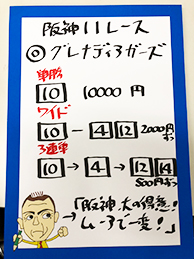 阪神11レース
◎グレナディアガーズ
単勝
10 10000円
ワイド
10 - 4 12 2000円ずつ
3連単
10 → 4 → 12 14
500円ずつ
「阪神、大の得意!
ムーアで一変!」